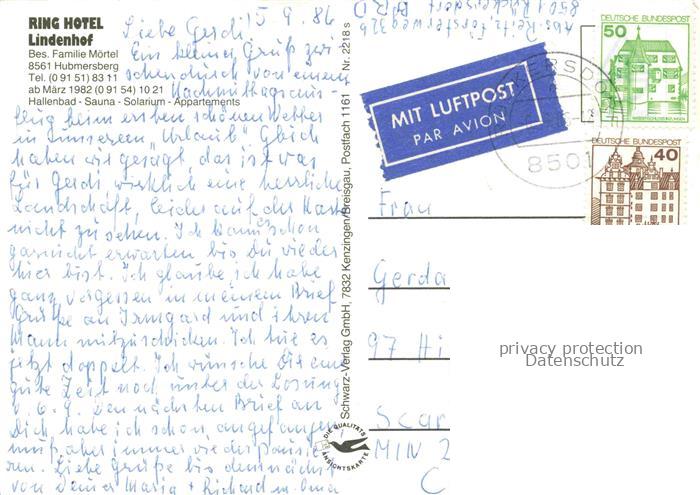 RING HOTEL
Lindenhof
Bes. Familie Mörtel
8561 Hubmersberg
Tel. (0 91 51) 83 11
ab März 1982 (0 91 54) 10 21
Hallenbad - Sauna - Solarium - Appartements
15.9.86
Liebe Gerdi!
Ein kleiner Gruß zwi
schendurch von einem
Nachmittagsaus-
flug beim ersten schönen Wetter
in unserem "Urlaub". Gleich
haben wir gesagt das ist was
für Gerdi wirklich eine herrliche
Landschaft, leider auf der Karte
nicht zu sehen. Ich kann's schon
garnicht erwarten bis du wieder
hier bist. Ich glaube, ich habe
ganz vergessen in meinem Brief
Grüße an Irmgard und ihren
Mann mitzuschicken. Ich tue es
jetzt doppelt. Ich wünsche Dir eine
gute Zeit noch unter der Losung
v. 6.9. Den nächsten Brief an
Dich habe ich schon angefangen
muß aber immer wieder pausie
ren. Liebe Grüße bis demnächst
von Deiner Maria + Richard
Schwarz-Verlag GmbH, 7832 Kenzingen/Breisgau, Postfach 1161 Nr. 2218 s
DIE QUALITÄTS
ANSICHTSKARTE
Abs. Reitz, Försterweg 32b
8501 Rückersdorf BRD
MIT LUFTPOST
PAR AVION
8501
DEUTSCHE BUNDESPOST
50
DEUTSCHE BUNDESPOST
40
Frau
Gerda
97 Hi
Scar
MIN 2
C
privacy protection
Datenschutz